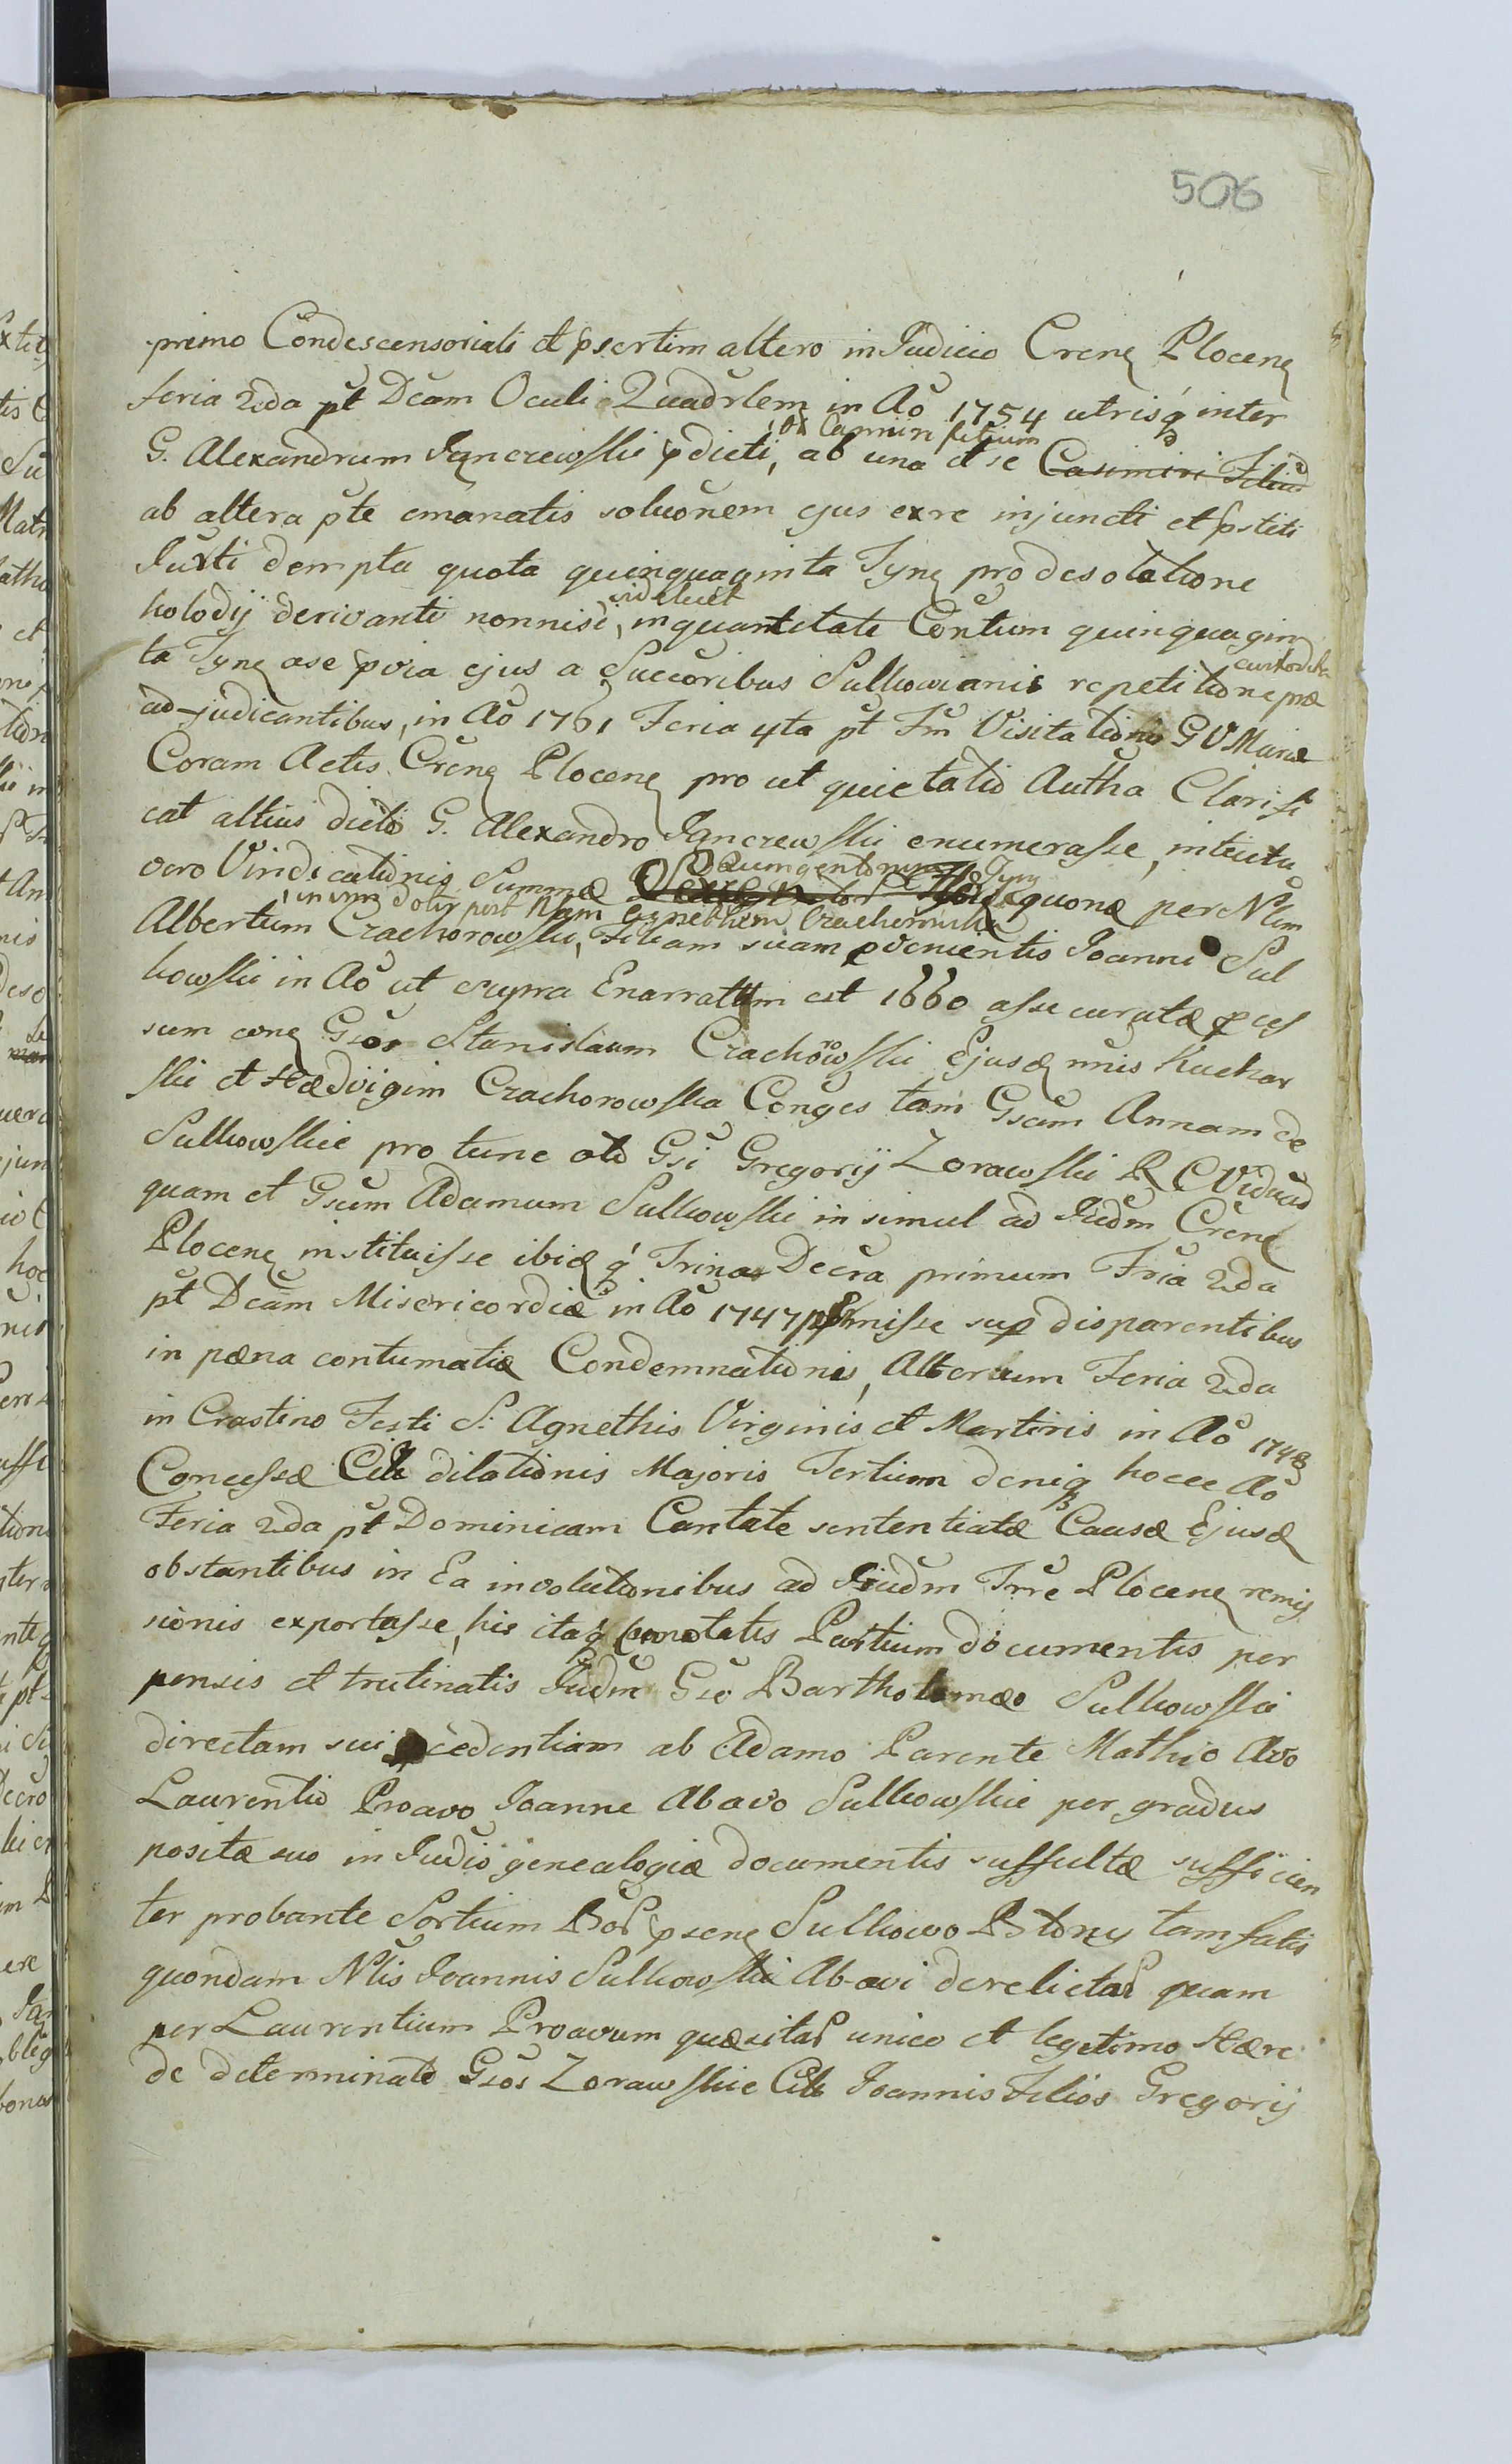 506
primo Condescensoriali et psertim altero in Judicio Crenę Plocenę
feria 2da pt Dcam Oculi Quadrlem in Ao 1754 utrisq inter
ex Casimiri filium
G. Alexandrum Jęnczewski pdicti, ab una et se Casimiri Filiū
ab altera pte emanatis soluonem ejus exre injuncti et pstiti
Juxti dempta quota quinquaginta Tynę pro desolatione
videlicet
kolodij derivanti nonnisi, in quantitate Centum quinquagin
ta Tynę a se pvia ejus a Succoribus Sulkowianis repetitione præ
ad-judicantibus, in Ao 1761 Feria 4ta pt Fm Visitationis G V Mariæ
Coram Actis Crenę Plocenę pro ut quietatio Autha Clarifi
cat altius dicto G. Alexandro Jęnczewski enumerasse, intuitu
Quingentorum
vero Vindicationis Summæ quonæ per Nlem
in vim dotis post Nam Agnethem Czachorowska
Albertum Czachorowski, Filiam suam pvenientis Joanni Sul
kowski in Ao ut supra Enarratum est 1660 assecuratæ pces
sum conę Gsos Stanislaum Czachorowski Ejusdę nnis Kuchar
ski et Hædvigim Czachorowska Conges tam Gsam Annam de
Sulkowskie pro tunc oto Gsi Gregorij Zorawski R C Viduam
quam et Gsum Adamum Sulkowski in simul ad Judm Crenę
Plocenę instituisse ibidę q Trina Decra primum Fria 2da
pt Dcam Misericordiæ in Ao 1747 sup disparentibus
in pæna contumatiæ Condemnationis, Alterum Feria 2da
in Crastino Festi S. Agnethis Virginis et Martiris in Ao 1748
Concessæ dilationis Majoris Tertium deniq hocce Ao
Feria 2da pt Dominicam Cantate sententiatæ Causæ Ejusdę
obstantibus in Ea involutionibus ad Judm Trre Plocenę remis
sionis exportasse, his itaq connotatis Partium documentis per
pensis et trutinatis Judm Gso Bartholomæo Sulkowski
directam sui pcedentiam ab Adamo Parente Mathio Avo
Laurentio Proavo Joanne Abavo Sulkowskie per gradus
positæ suo in Judio genealogiæ documentis suffultæ sufficien
ter probante Sortium Bor psenę Sulkowo Btony tam fatis
quondam Nlis Joannis Sulkowski Ab-avi derelictar quam
per Laurentium Proavum quæsitar unico et legetimo Hære
de determinato Gsos Zorawskie Joannis Filios Gregorij